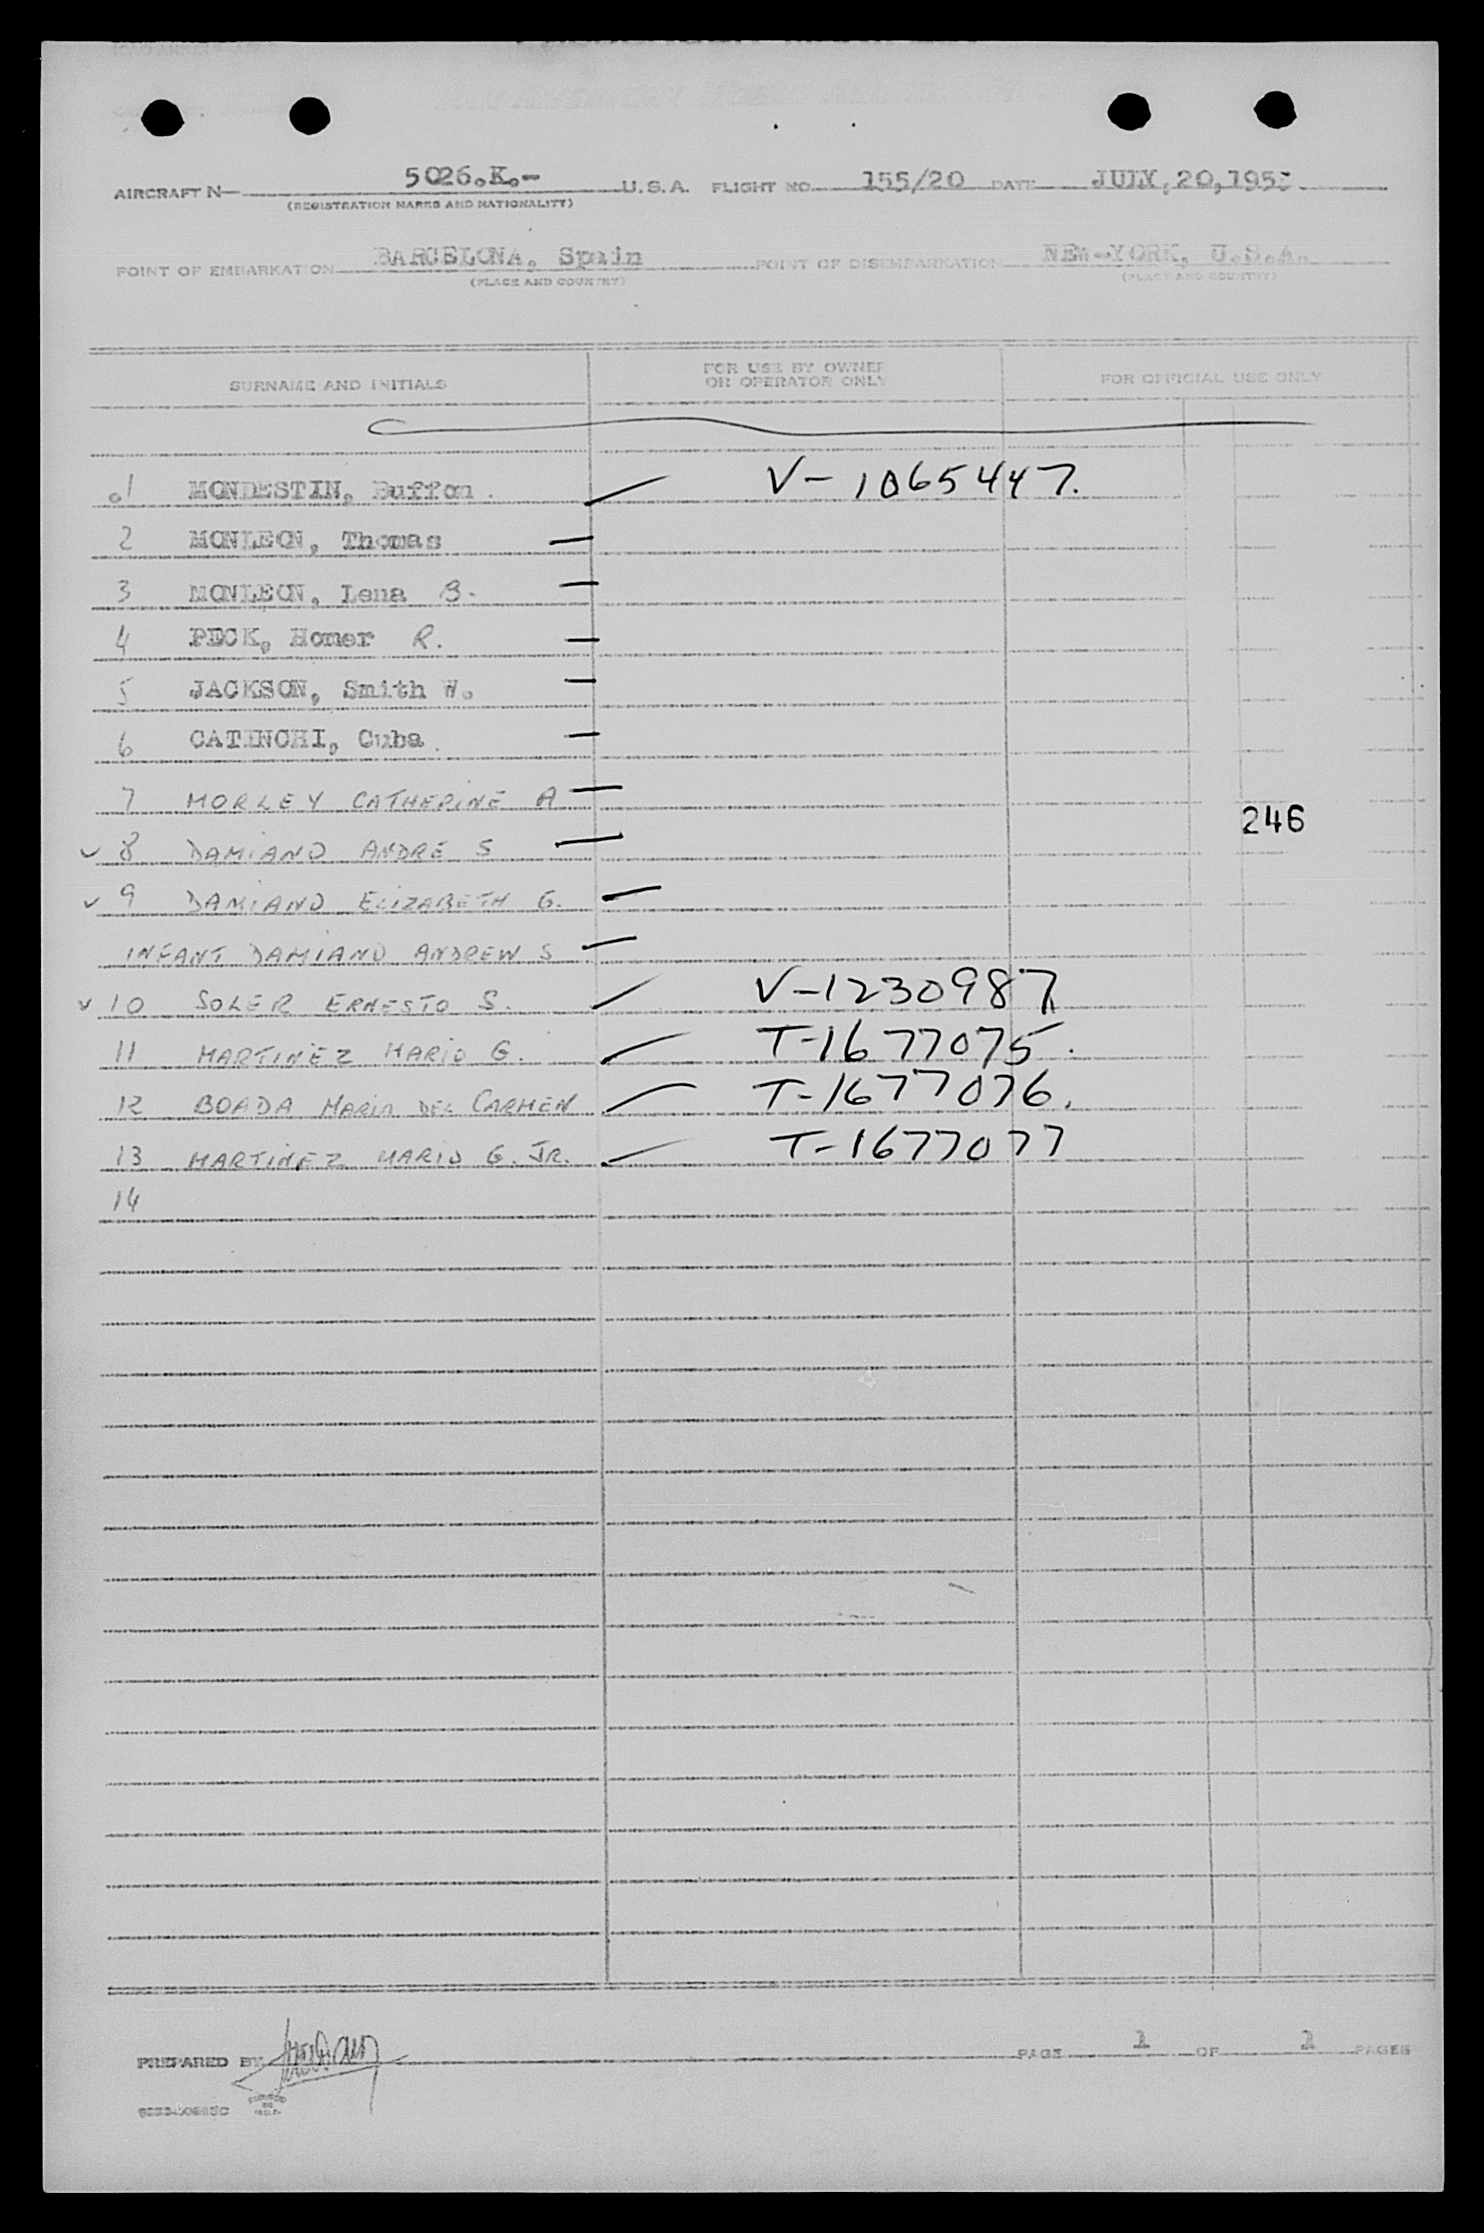 AIRCRAFT N- 5026.K.- U.S.A. FLIGHT NO. 155/20 DATE JULY, 20, 195
(REGISTRATION MARKS AND NATIONALITY)
POINT OF EMBARKATION BARCELONA, Spain POINT OF DISEMBARKATION NEW-YORK, U.S.A.
(PLACE AND COUNTRY) (PLACE AND COUNTRY)
SURNAME AND INITIALS FOR USE BY OWNER OR OPERATOR ONLY FOR OFFICIAL USE ONLY
.1 MONDESTIN, Buffon. V-1065447.
2 MONLEON, Thomas
3 MONLEON, Lena B.
4 PECK, Homer R.
5 JACKSON, Smith W.
6 CATINCHI, Cuba.
7 MORLEY CATHERINE A
246
8 DAMIANO ANDRE S
9 DAMIANO ELIZABETH G.
INFANT DAMIANO ANDREW S
10 SOLER ERNESTO S. V-1230987
11 MARTINEZ MARIO G. T-1677075.
12 BOADA MARIA DEL CARMEN T-1677076.
13 MARTINEZ MARIO G. JR. T-1677077
14
PREPARED BY PAGE 1 OF PAGES